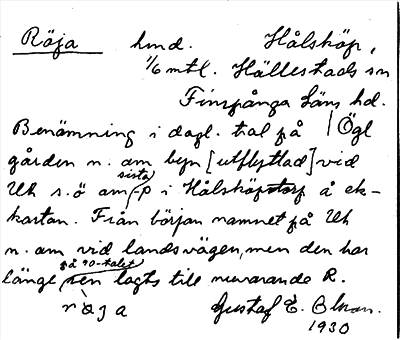 Röja hmd. Hålsköp,
1/6 mtl. Hällestads sn
Finspånga läns hd.
Benämning i dagl. tal på Ögl
gården n. am byn [utflyttad] vid
Uh s.ö am sista p i Hålsköpstorp å ek-
kartan. Från början namnet på Uh
n. am vid landsvägen, men den har
länge sen på 90-talet lagts till nuvarande R.
röja Gustaf E.
1930